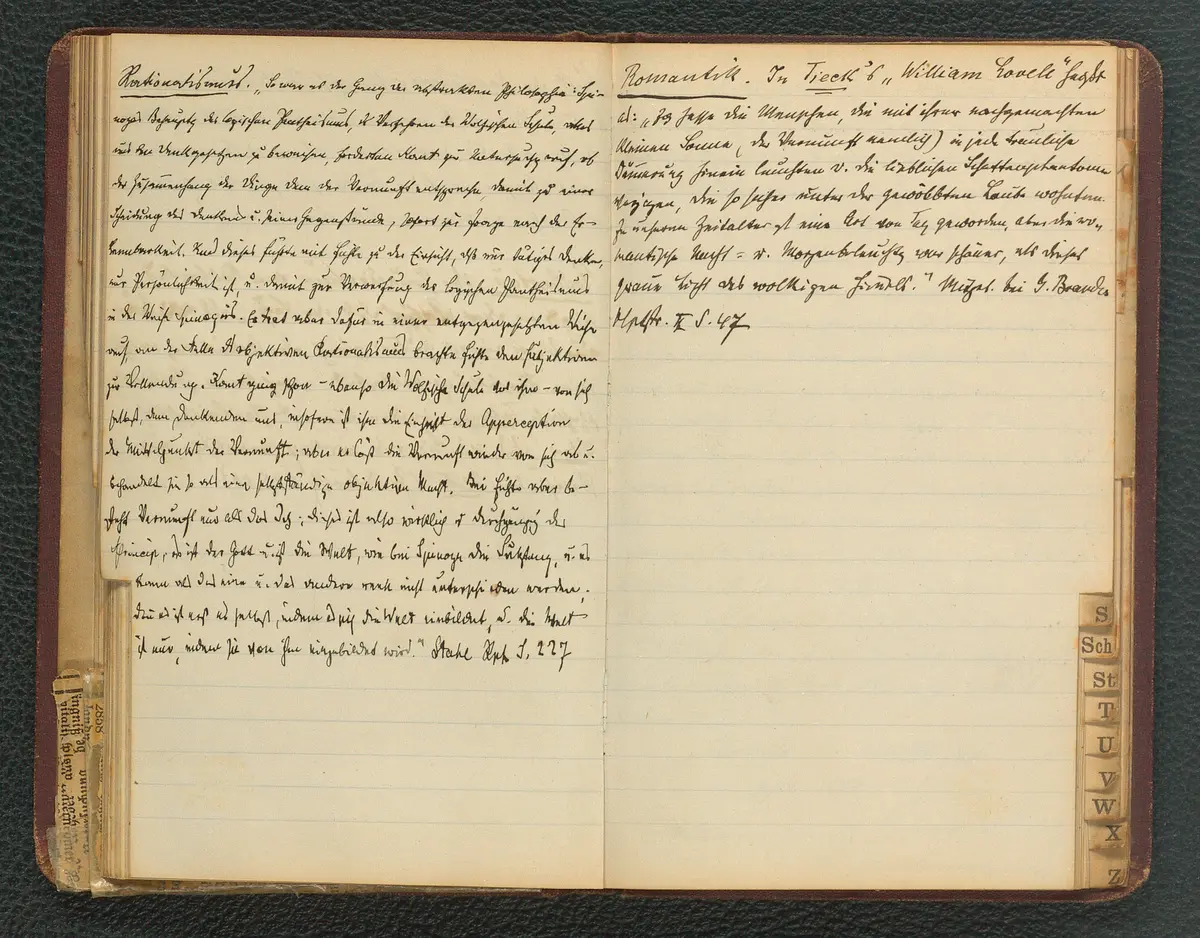 Rationalismus. „So war es der Gang der abstrakten Philosophie: Spi-
nozas Behauptg des logischen Pantheismus, d. Verfahren der Wolfischen Schule, alles
aus den Denkgesetzen zu beweisen, forderten Kant zur Untersuchg auf, ob
der Zusammenhang der Dinge dem der Vernunft entspreche, damit zu einer
Scheidung des Denkens u. seiner Gegenstände, sofort zur Frage nach der Er-
kennbarkeit. Und dieses führte mit Fichte zu der Einsicht, daß nur tätiges Denken,
nur Persönlichkeit ist, u. damit zur Verwerfung des logischen Pantheismus
in der Weise Spinozas. Er trat aber dafür in einer entgegengesetzten Weise
auf, an der Stelle des objektiven Rationalismus brachte Fichte den subjektiven
zur Vollendung. Kant ging schon – ebenso die Wolfische Schule vor ihm – von sich
selbst, dem Denkenden aus, insofern ist ihm die Einheit der Apperception
der Mittelpunkt der Vernunft; aber er löst die Vernunft wieder von sich ab u.
behandelt sie so als eine selbstständige objektive Macht. Bei Fichte aber be-
steht Vernunft nur als das Ich; dieses ist also wirklich u. durchgängig das
Princip, es ist der Gott u. ist die Welt, wie bei Spinoza die Substanz, u. es
kann als das eine u. das andere auch nicht unterschieden werden,
denn es ist erst es selbst, indem es sich die Welt einbildet, u. die Welt
ist nur, indem sie von ihm eingebildet wird.“ Stahl Rph S. 227
Romantik. In Tieck's „William Lovell“ heißt
es: „Ich hasse die Menschen, die mit ihrer nachgemachten
kleinen Sonne, (der Vernunft nemlich) in jede trauliche
Dämmerung hinein leuchten u. die lieblichen Schattenphantome
verjagen, die so sicher unter der gewölbten Laube wohnten.
In unserem Zeitalter ist eine Art von Tag geworden, aber die ro-
mantische Nacht- u. Morgenbeleuchtg war schöner, als dieses
graue Licht des wolkigen Himmels.“ Mitget. bei G. Brandes
Hptstr. II S. 47
S
Sch
St
T
U
V
W
X
Z